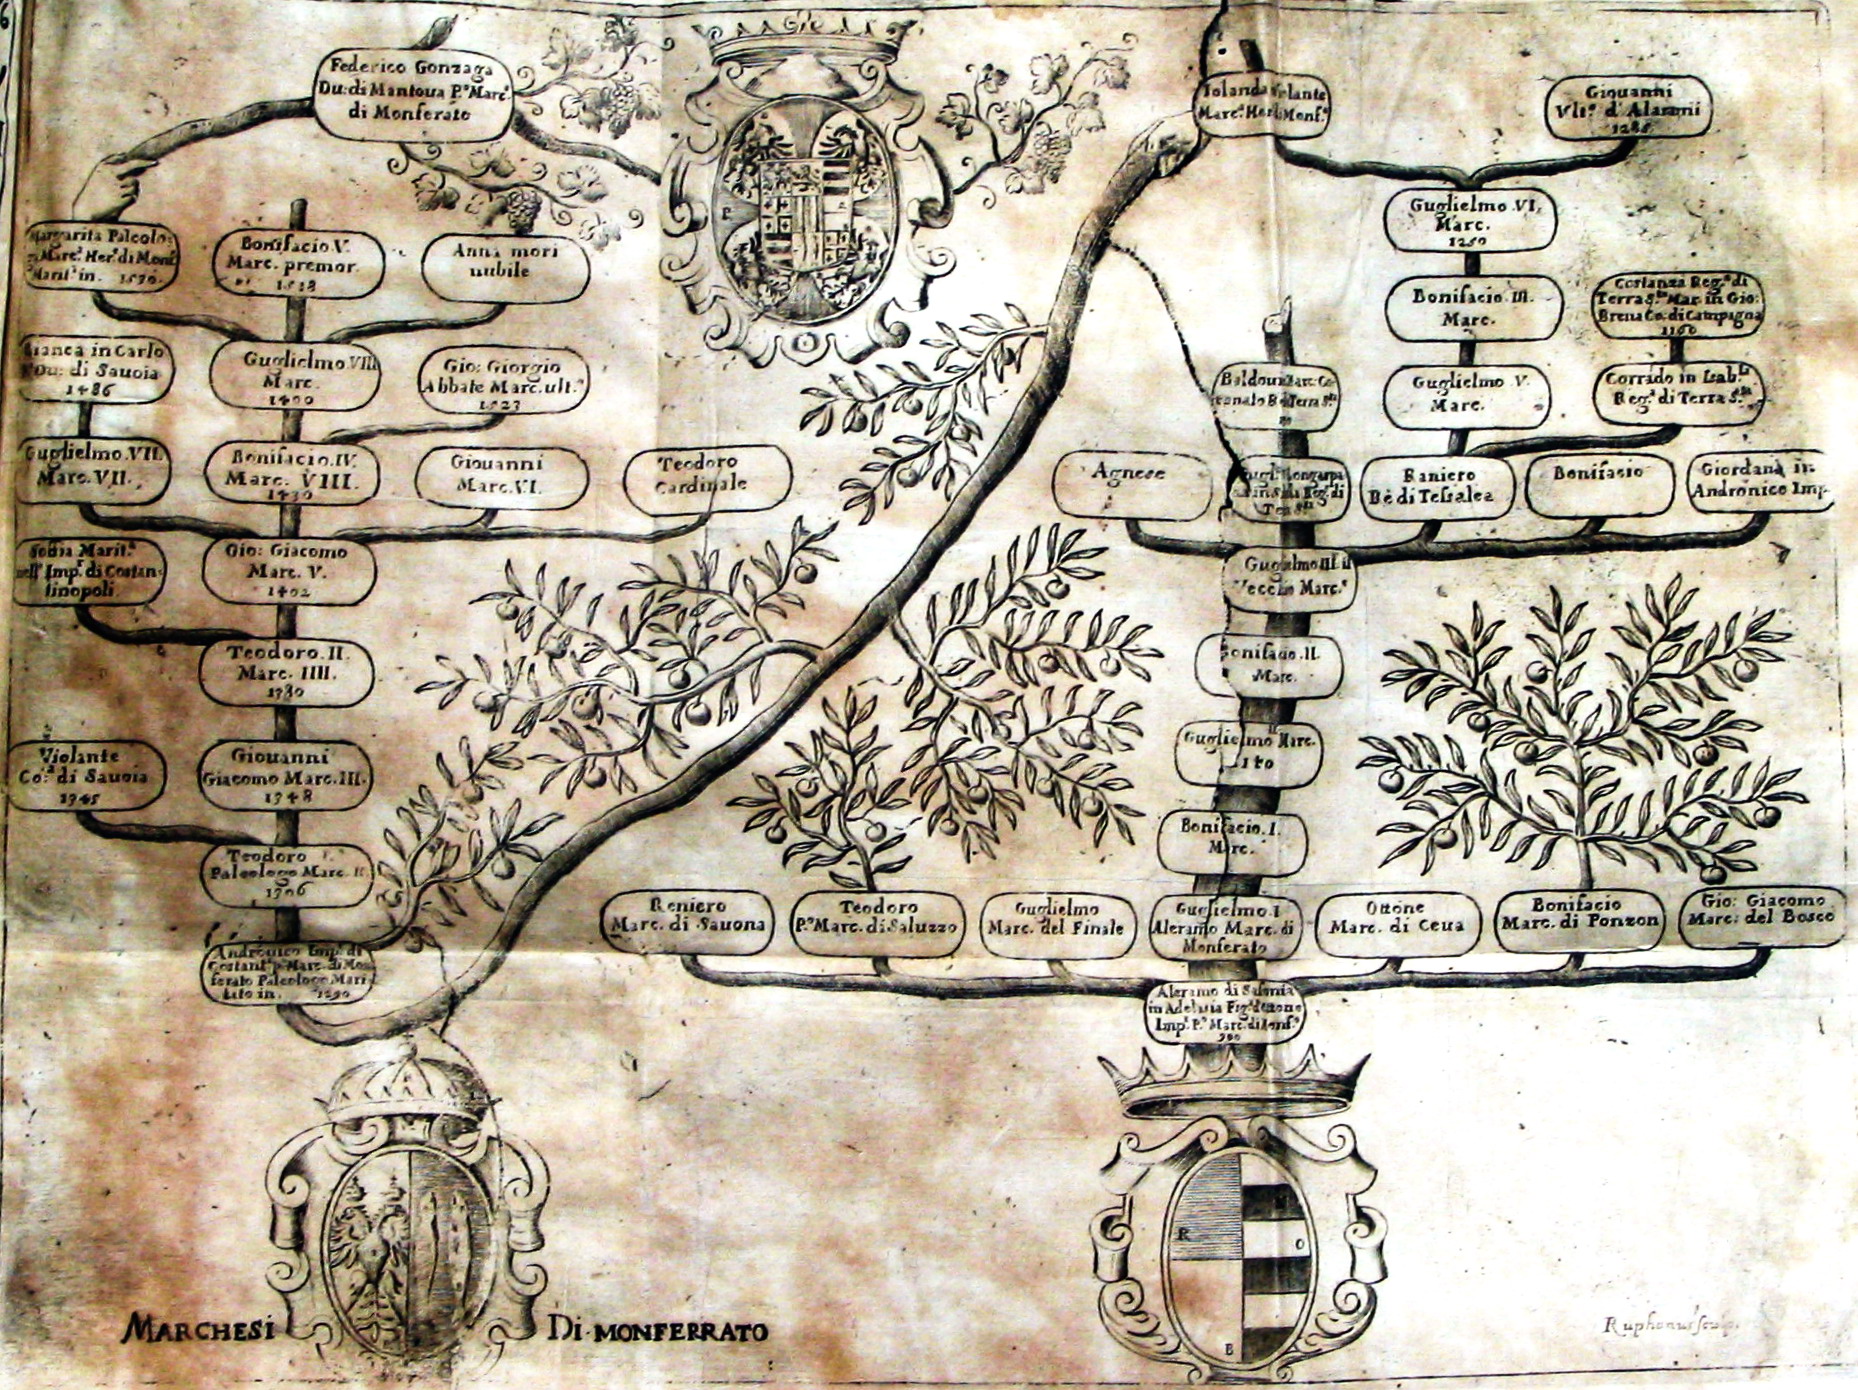 Federico Gonzaga
Du: di Mantoua P.º Marc.
di Monferato
Margarita Paleolo:
Marc.ª Her. di Monf.
Marit.ª in.
Bonifacio V.
Marc. premor.
1518
Anna mori
nubile
Bianca in Carlo
Du: di Sauoia
1486
Guglielmo VIII
Marc.
1400
Gio: Giorgio
Abbate Marc. ult.º
1523
Guglielmo VII.
Marc. VII.
Bonifacio IV.
Marc. VIII.
1430
Giouanni
Marc. VI.
Teodoro
Cardinale
Soffia Marit.ª
nell' Imp.r di Costan-
tinopoli
Gio: Giacomo
Marc. V.
1402
Teodoro II.
Marc. IIII.
1380
Violante
Co:ª di Sauoia
1345
Giouanni
Giacomo Marc. III.
1348
Teodoro
Paleologo Marc. II
1306
Andronico Imp. di
Costant. Marc. di Mon
ferato Paleologo Mari
tato in. 1290
Iolanda Violante
Marc.ª Her. Monf.
Giouanni
Vlt.º d'Alarami
Guglielmo VI.
Marc.
1250
Bonifacio III.
Marc.
Costanza Reg.ª di
Terra S.ta Mar. in Gio:
Brena Co. di Campagna
Baldouin
Terra S.ta
Guglielmo V.
Marc.
Corrado in Isab.la
Reg.ª di Terra S.ta
Agnese
Reg. di
Raniero
Rè di Tessalea
Bonifacio
Giordana in
Andronico Imp.
Guglielmo III. il
Vecchio Marc.
Bonifacio II.
Marc.
Guglielmo Marc.
Bonifacio. I.
Marc.
Reniero
Marc. di Sauona
Teodoro
P.º Marc. di Saluzzo
Guglielmo
Marc. del Finale
Guglielmo I
Aleramo Marc. di
Monferato
Ottone
Marc. di Ceua
Bonifacio
Marc. di Ponzon
Gio: Giacomo
Marc: del Bosco
Aleramo di Sasonia
in Adelasia Fig.ª d'Ottone
Imp.r P.º Marc. di Monf.
900
R
O
B
MARCHESI DI MONFERRATO